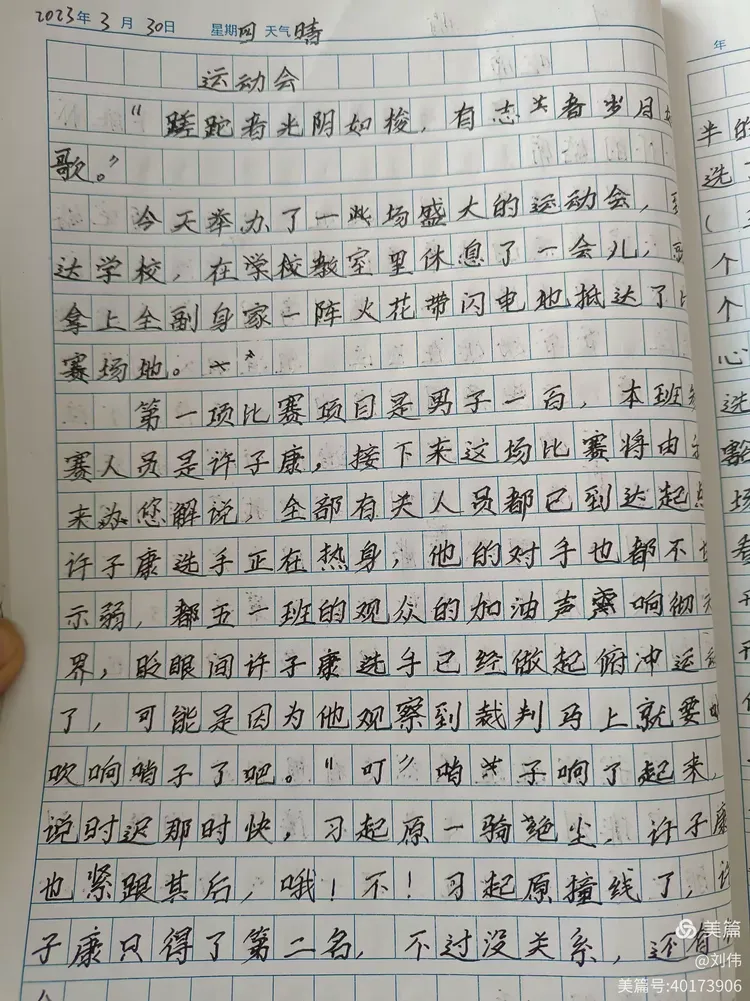 2023年3月30日 星期四 天气晴
运动会
“蹉跎者光阴如梭，有志者岁月如
歌。”
今天举办了一场盛大的运动会，到
达学校，在学校教室里休息了一会儿，
拿上全副身家一阵火花带闪电地抵达了比
赛场地。
第一项比赛项目是男子一百，本班参
赛人员是许子康，接下来这场比赛将由我
来为您解说，全部有关人员都已到达起点
许子康选手正在热身，他的对手也都不甘
示弱，都五一班的观众的加油声响彻天
界，眨眼间许子康选手已经做起俯冲运动
了，可能是因为他观察到裁判马上就要
吹响哨子了吧。“叮”哨子响了起来，
说时迟那时快，习起原一骑绝尘，许子康
也紧跟其后，哦！不！习起原撞线了，许
子康只得了第二名，不过没关系，还有
年
半的
选
（
个
个
心
选
场
美篇
@刘伟
美篇号:40173906